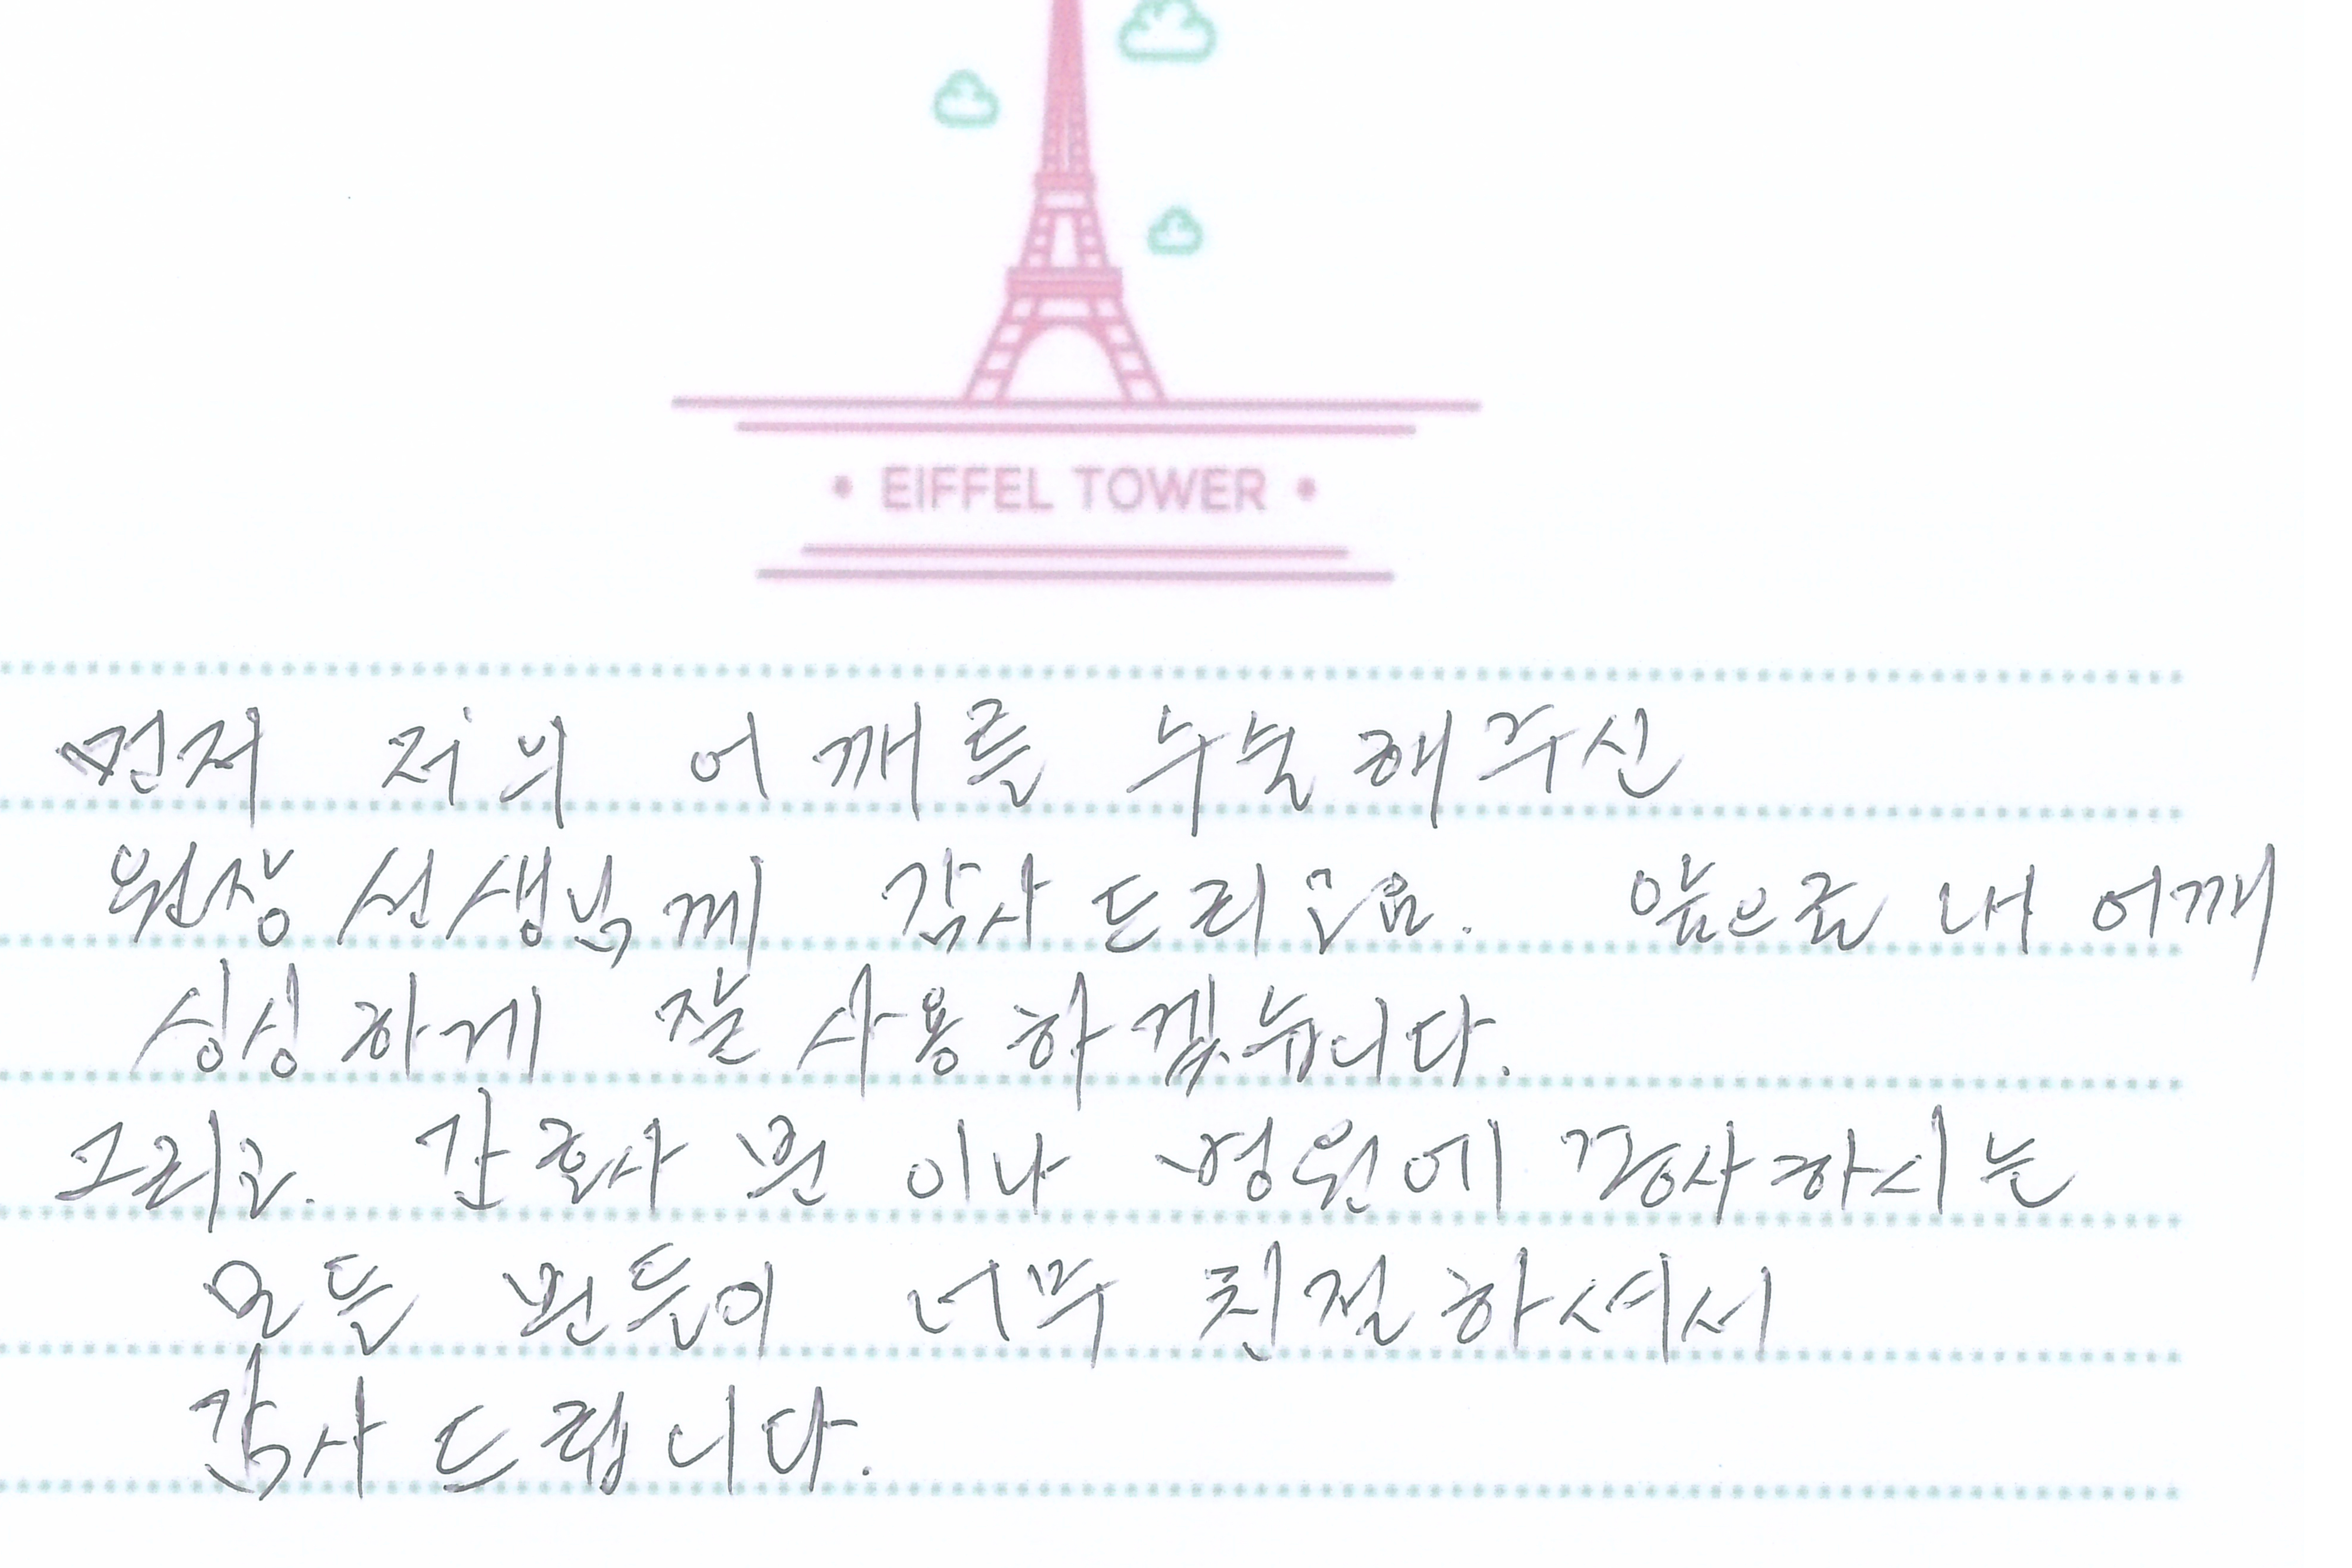 EIFFEL TOWER
먼저 저의 어깨를 수술해주신
원장선생님께 감사드리고요. 앞으로 내 어깨
싱싱하게 잘 사용하겠습니다.
그리고. 간호사분이나 병원에 종사하시는
모든 분들이 너무 친절하셔서
감사드립니다.